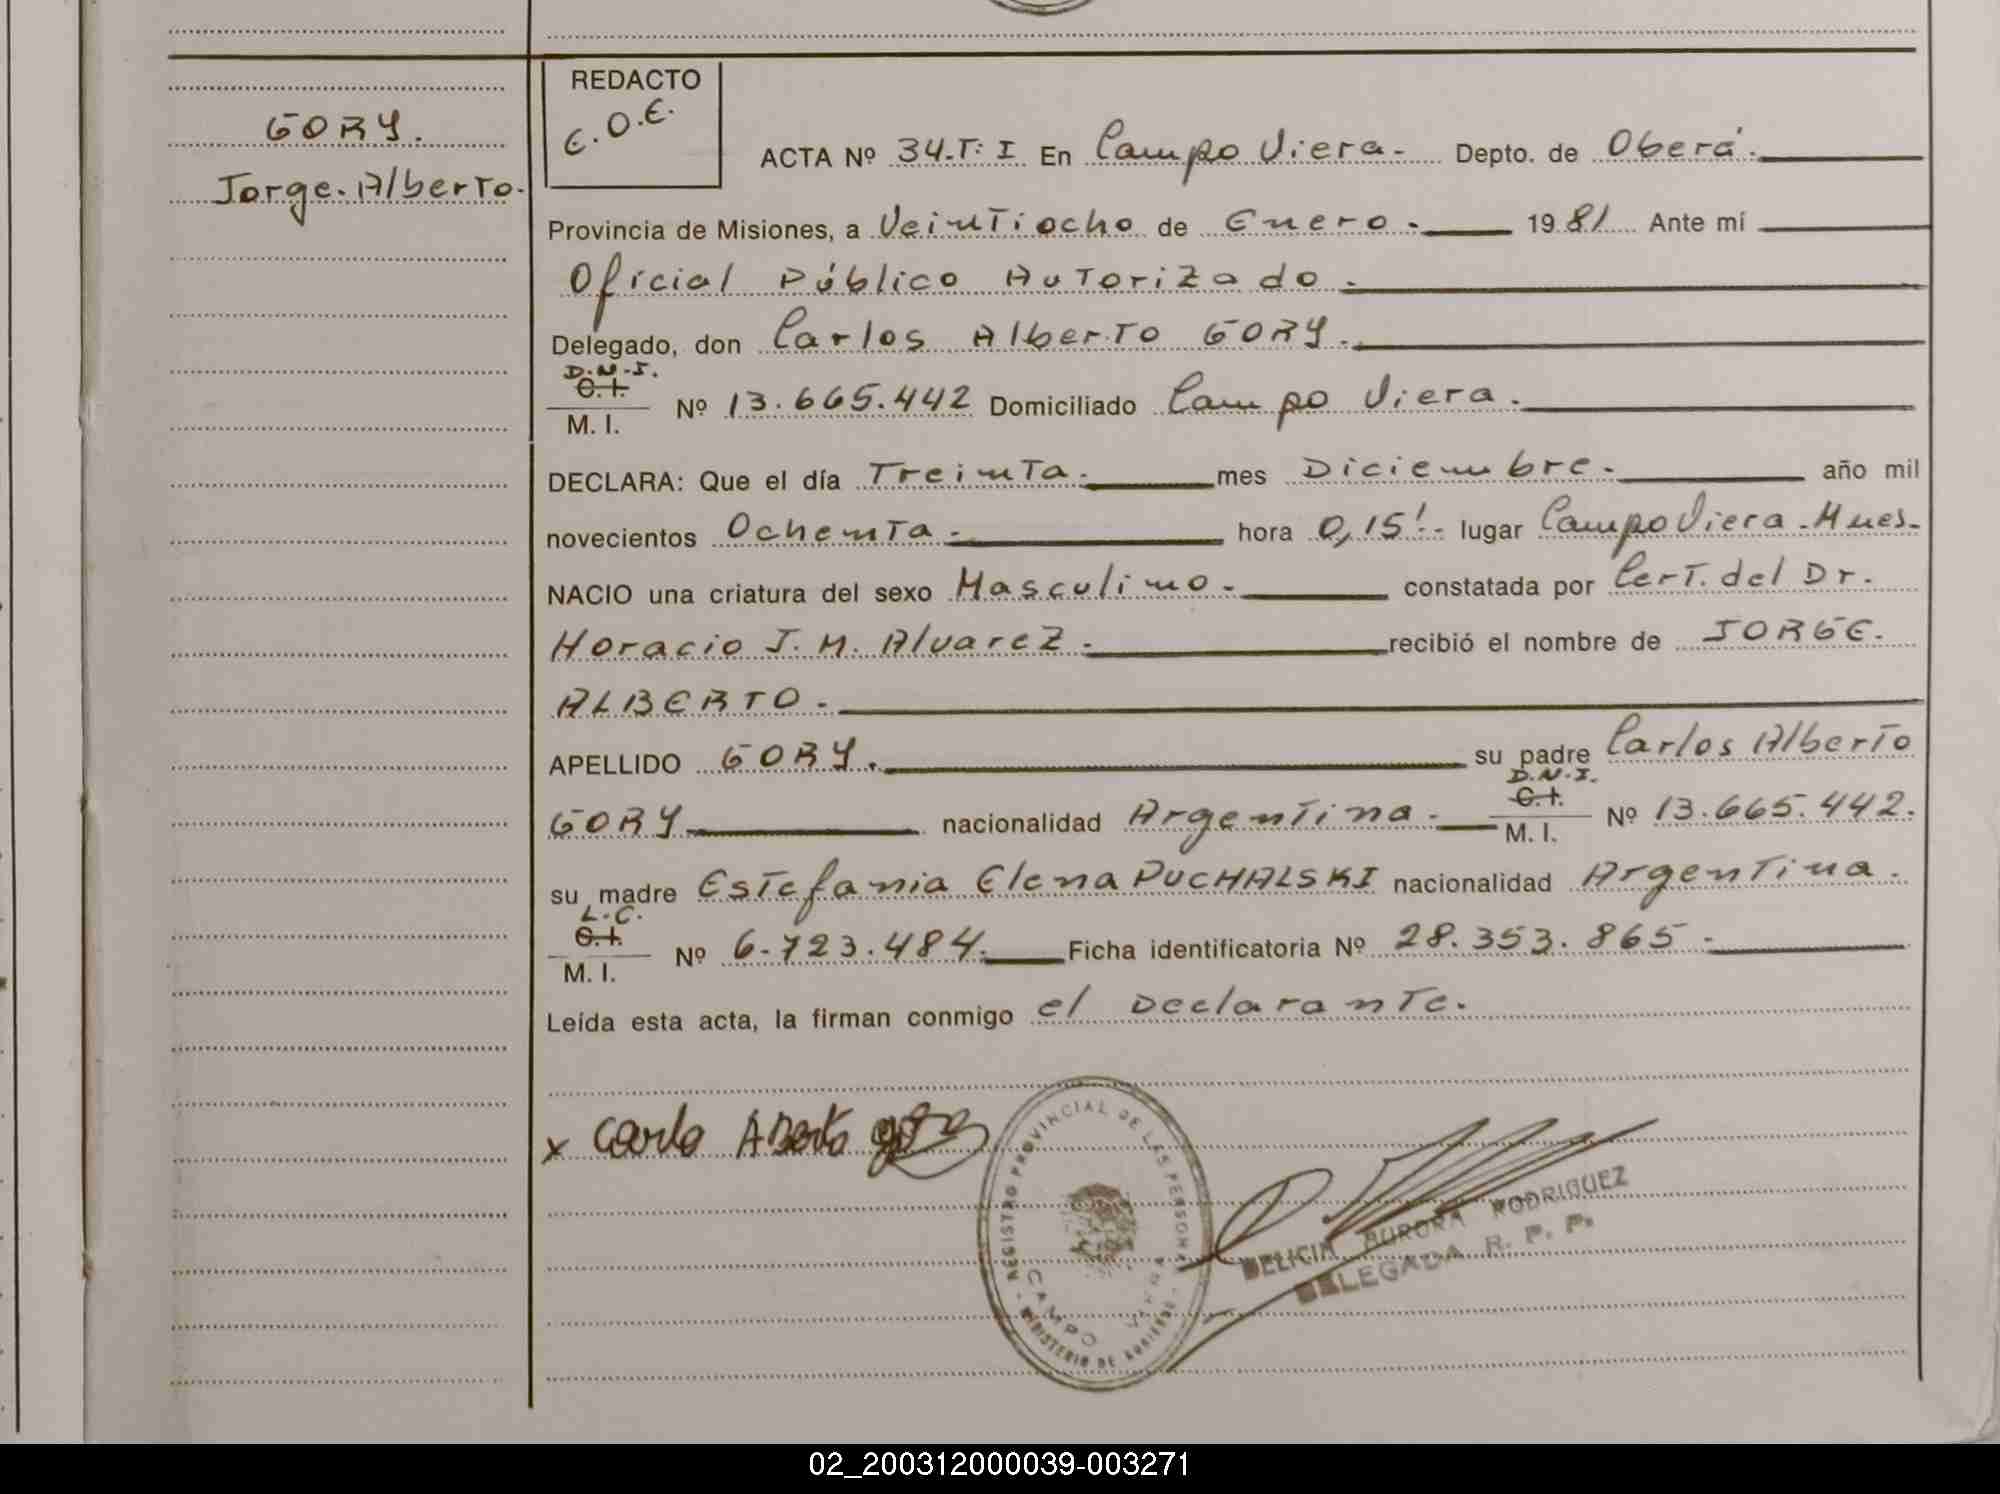 GORY.
Jorge. Alberto.
REDACTO
E.O.E.
ACTA Nº 34.T: I En Campo Viera.- Depto. de Oberá.
Provincia de Misiones, a Veintiocho de Enero.- 1981 Ante mí
Oficial Público Autorizado.
Delegado, don Carlos Alberto GORY.
D.N.I.
C.I.
M. I. Nº 13.665.442 Domiciliado Campo Viera.
DECLARA: Que el día Treinta. mes Diciembre. año mil
novecientos Ochenta. hora 0,15'.- lugar Campo Viera - Mnes.
NACIO una criatura del sexo Masculino. constatada por Cert. del Dr.
Horacio J. M. Alvarez. recibió el nombre de JORGE.
ALBERTO.
APELLIDO GORY. su padre Carlos Alberto
GORY nacionalidad Argentina. D.N.I. C.I. M. I. Nº 13.665.442.
su madre Estefania Elena PUCHALSKI nacionalidad Argentina.
L.C.
C.I.
M. I. Nº 6.723.484. Ficha identificatoria Nº 28.353.865.
Leída esta acta, la firman conmigo el Declarante.
x Carlo ABerto
REGISTRO PROVINCIAL DE LAS PERSONAS
CAMPO VIERA
MINISTERIO DE GOBIERNO
DELICIA AURORA RODRIGUEZ
DELEGADA R. P. P.
02_200312000039-003271